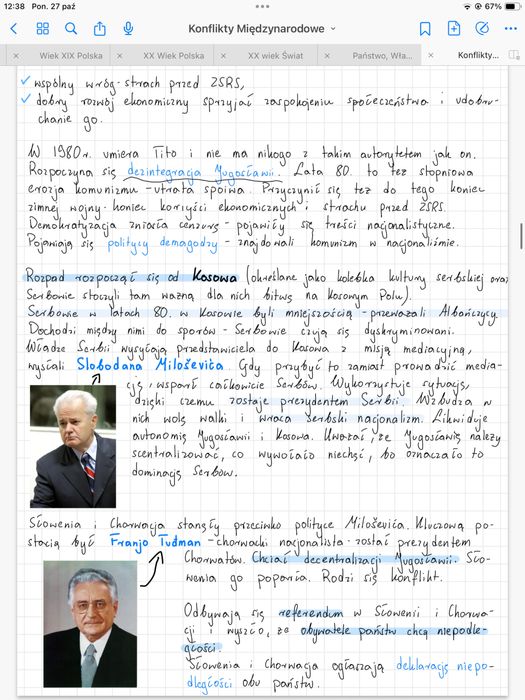 12:38 Pon. 27 paź
67%
Konflikty Międzynarodowe
Wiek XIX Polska
XX Wiek Polska
XX wiek Świat
Państwo, Wła...
Konflikty...
wspólny wróg - strach przed ZSRS,
dobry rozwój ekonomiczny sprzyjał zaspokojeniu społeczeństwa i udobru-
chanie go.
W 1980r. umiera Tito i nie ma nikogo z takim autorytetem jak on.
Rozpoczyna się dezintegracja Jugosławii. Lata 80. to też stopniowa
erozja komunizmu - utrata spoiwa. Przyczynił się też do tego koniec
zimnej wojny - koniec korzyści ekonomicznych i strachu przed ZSRS.
Demokratyzacja zniosła cenzurę - pojawiły się treści nacjonalistyczne.
Pojawiają się politycy demagodzy - znajdowali komunizm w nacjonaliźmie.
Rozpad rozpoczął się od Kosowa (określane jako kolebka kultury serbskiej oraz
Serbowie stoczyli tam ważną dla nich bitwę na Kosowym Polu).
Serbowie w latach 80. w Kosowie byli mniejszością - przeważali Albańczycy.
Dochodzi między nimi do sporów - Serbowie czują się dyskryminowani.
Władze Serbii wysyłają przedstawiciela do Kosowa z misją mediacyjną,
wysłali Slobodana Miloševića. Gdy przybył to zamiast prowadzić media-
cję, wsparł całkowicie Serbów. Wykorzystuje sytuację,
dzięki czemu zostaje prezydentem Serbii. Wzbudza w
nich wolę walki i wraca serbski nacjonalizm. Likwiduje
autonomię Jugosławii i Kosowa. Uważał, że Jugosławię należy
scentralizować, co wywołało niechęć, bo oznaczało to
dominację Serbów.
Słowenia i Chorwacja stanęły przeciwko polityce Miloševića. Kluczową po-
stacią był Franjo Tuđman - chorwacki nacjonalista - został prezydentem
Chorwatów. Chciał decentralizacji Jugosławii. Sło-
wenia go poparła. Rodzi się konflikt.
Odbywają się referendum w Słowenii i Chorwa-
cji i wyszło, że obywatele państw chcą niepodle-
głości.
Słowenia i Chorwacja ogłaszają deklarację niepo-
dległości obu państw.